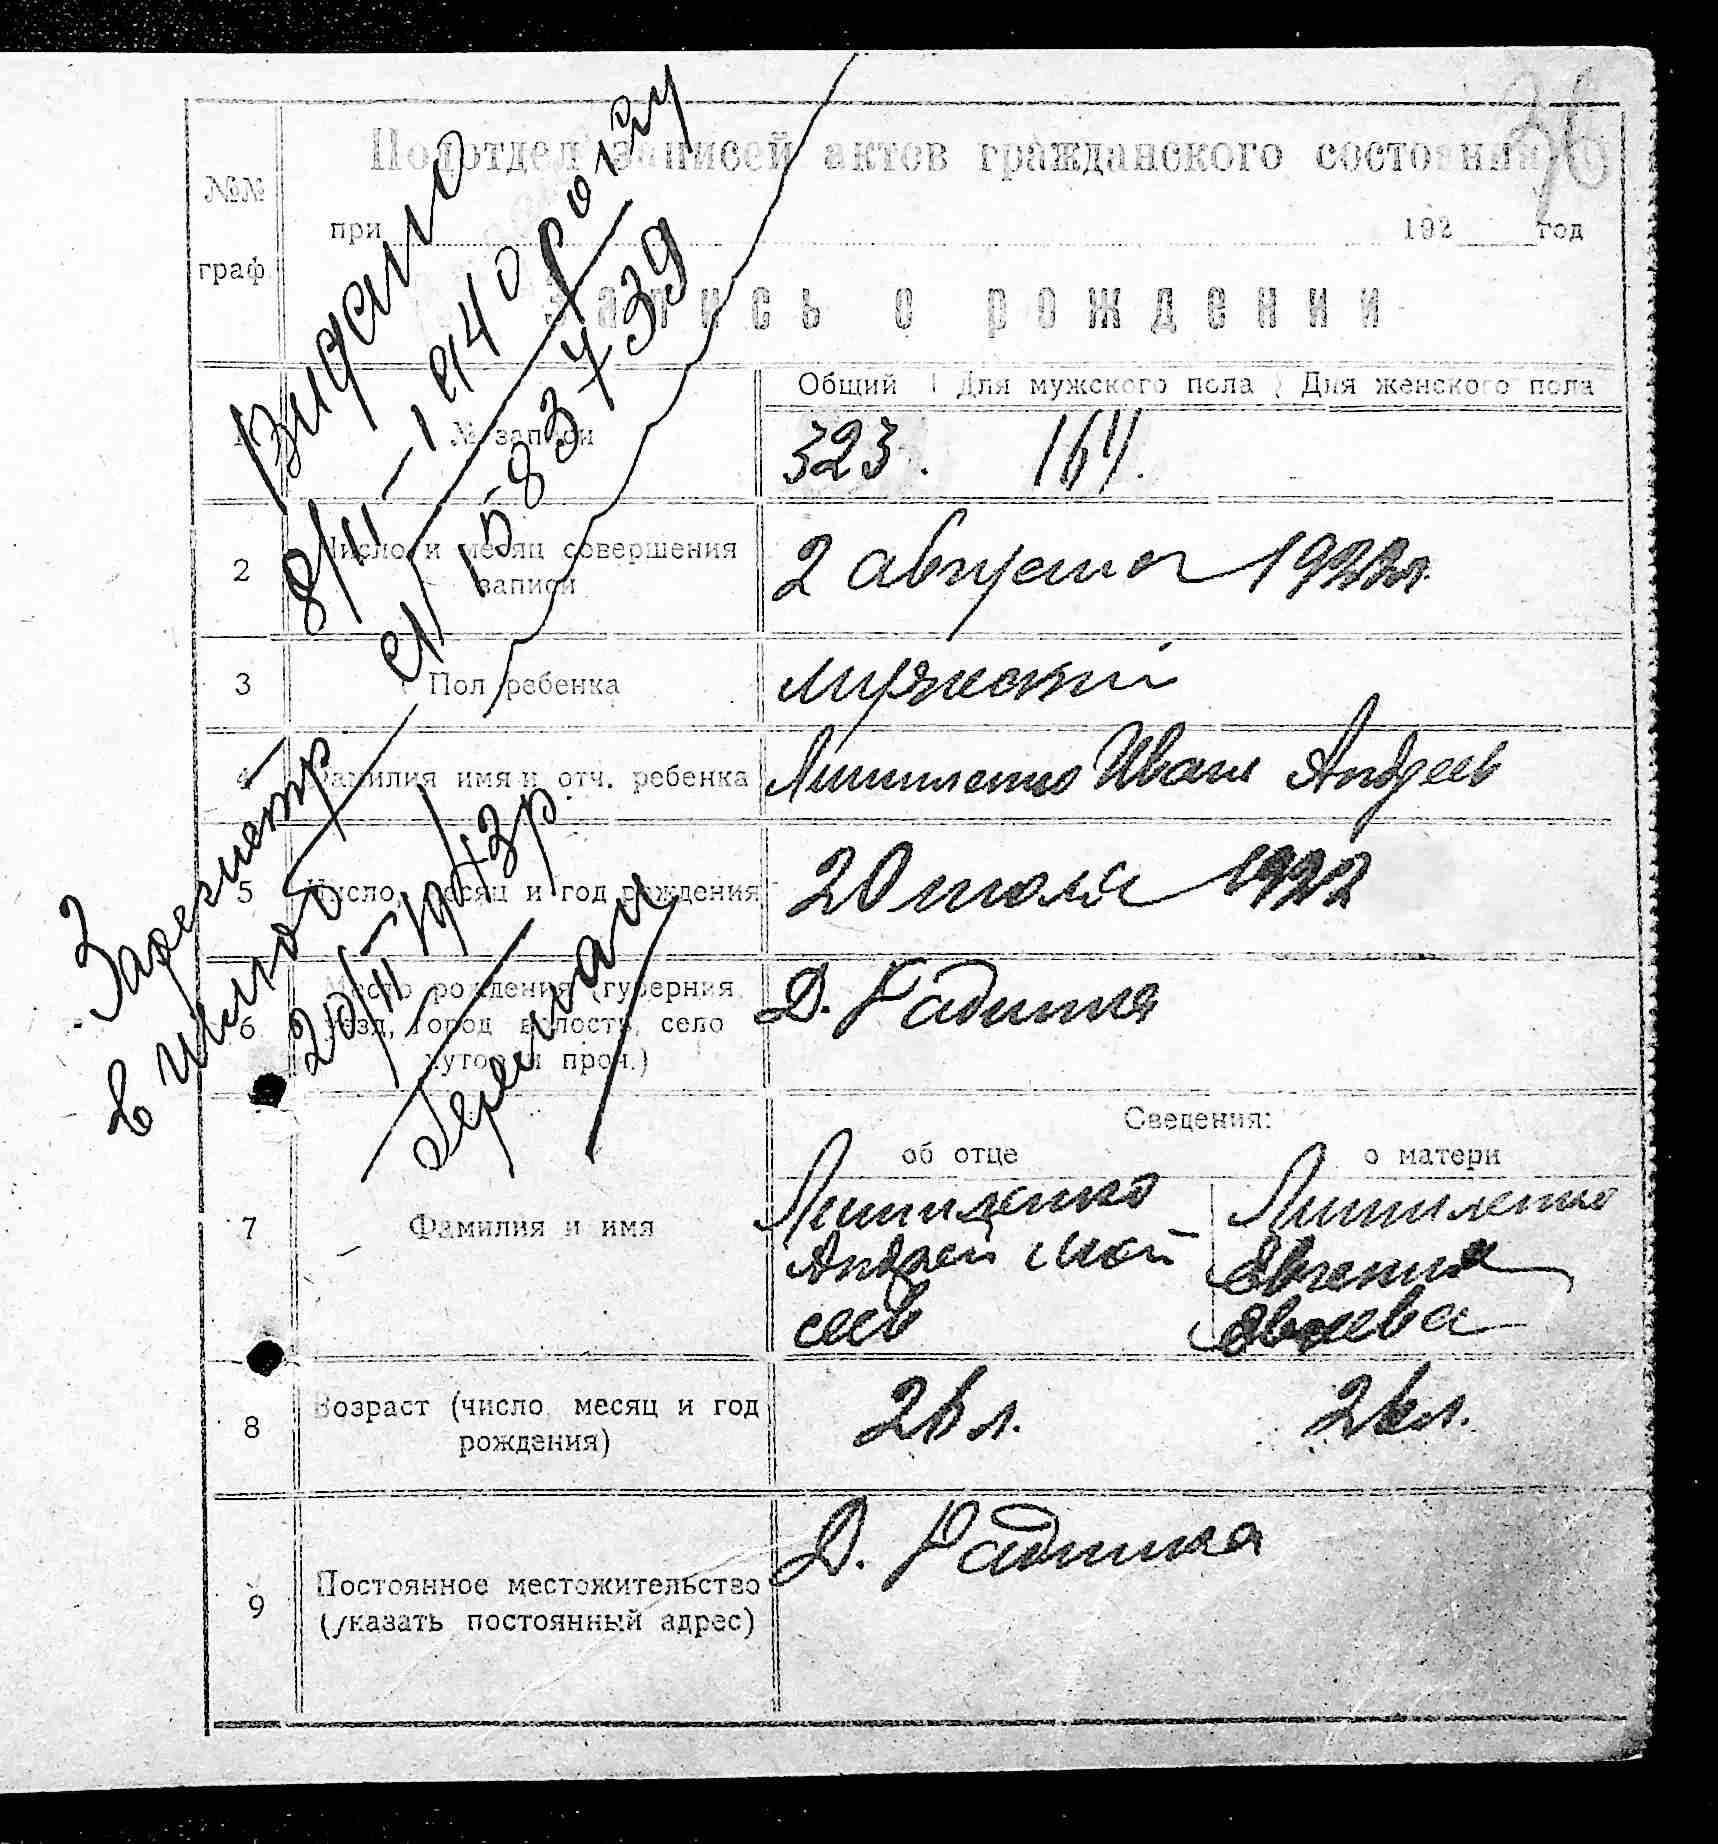 36
Подотдел записей актов гражданского состояния
№№
граф.
при 192 год
Запись о рождении
Видано
8/II-1940 року
с/ 158 37 39
Общий Для мужского пола Для женского пола
1 № записи 323. 164.
2 Число и месяц совершения
записи
2 августа 1922 г.
3 Пол ребенка мужеский
4 Фамилия имя и отч. ребенка Иван Андреев
5 Число, месяц и год рождения 20 июля 1922
6 Место рождения (губерния,
уезд, город волость, село
хутор и проч.)
Д.
Зареєистр
в
20/II 1943 р.
Сведения:
об отце о матери
7 Фамилия и имя
Андрей Мой
сеев
Евгения
8 Возраст (число, месяц и год
рождения)
26 л. 26 л.
9 Постоянное местожительство
(указать постоянный адрес)
Д.